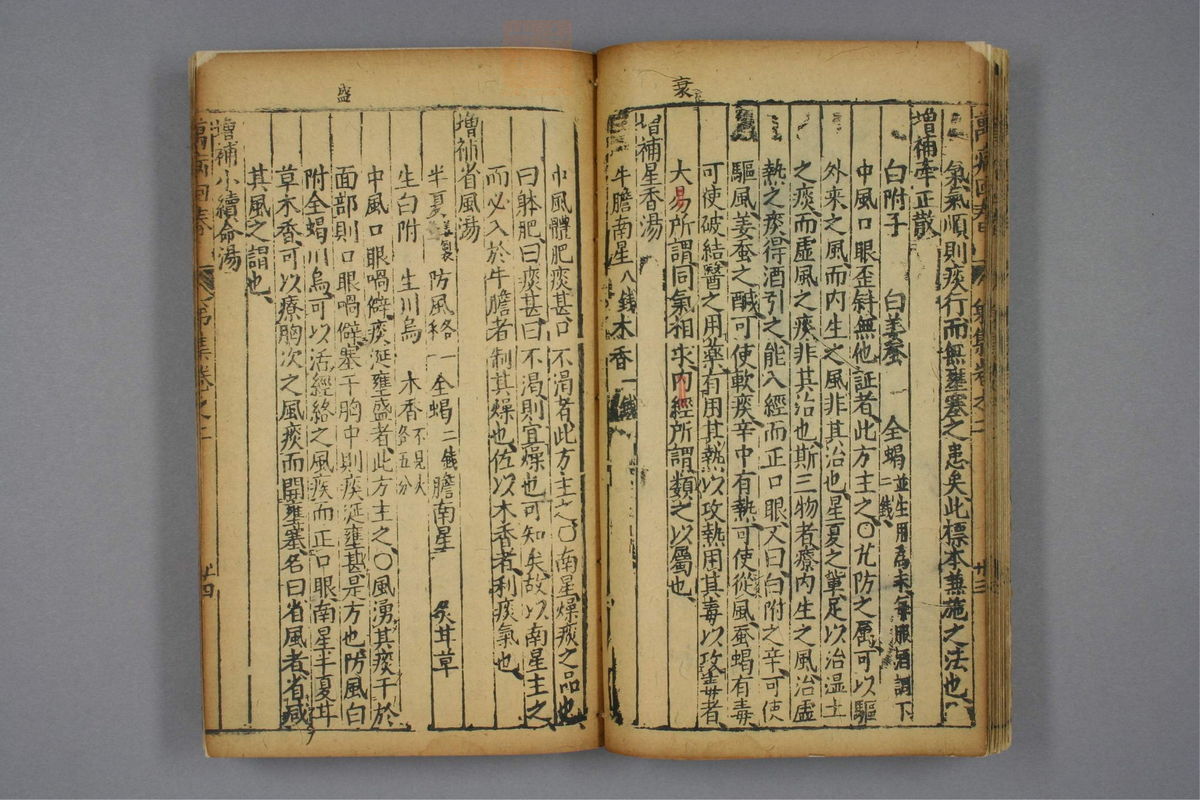 衰
氣氣順則痰行而無壅塞之患矣此標本兼施之法也
增補牽正散
白附子 白羌蚕 全蝎二錢 並生用為末每服酒調下
中風口眼歪斜無他証者此方主之〇艽防之属可以驅
外來之風而內生之風非其治也星夏之輩足以治湿土
之痰而虛風之痰非其治也斯三物者療內生之風治虛
熱之痰得酒引之能入經而正口眼又曰白附之辛可使
驅風姜蚕之醎可使軟痰辛中有熱可使從風蚕蝎有毒
可使破結醫之用藥有用其熱以攻熱用其毒以攻毒者
大易所謂同氣相求內經所謂類之以屬也
增補星香湯
牛膽南星八錢 木香一錢
盛
中風體肥痰甚口不渴者此方主之〇南星燥痰之品也
曰躰肥曰痰甚曰不渴則宜燥也可知矣故以南星主之
而必入於牛膽者制其燥也佐以木香者利痰氣也
增補省風湯
半夏姜製 防風各一 全蝎二錢 膽南星 炙甘草
生白附 生川烏 木香不見火各五分
中風口眼喎僻痰涎壅盛者此方主之〇風湧其痰干於
面部則口眼喎僻塞于胸中則痰涎壅甚是方也防風白
附全蝎川烏可以活經絡之風痰而正口眼南星半夏甘
草木香可以療胸次之風痰而開壅塞名曰省風者省減
其風之謂也
增補小續命湯
萬病回春 集卷之二 廿四